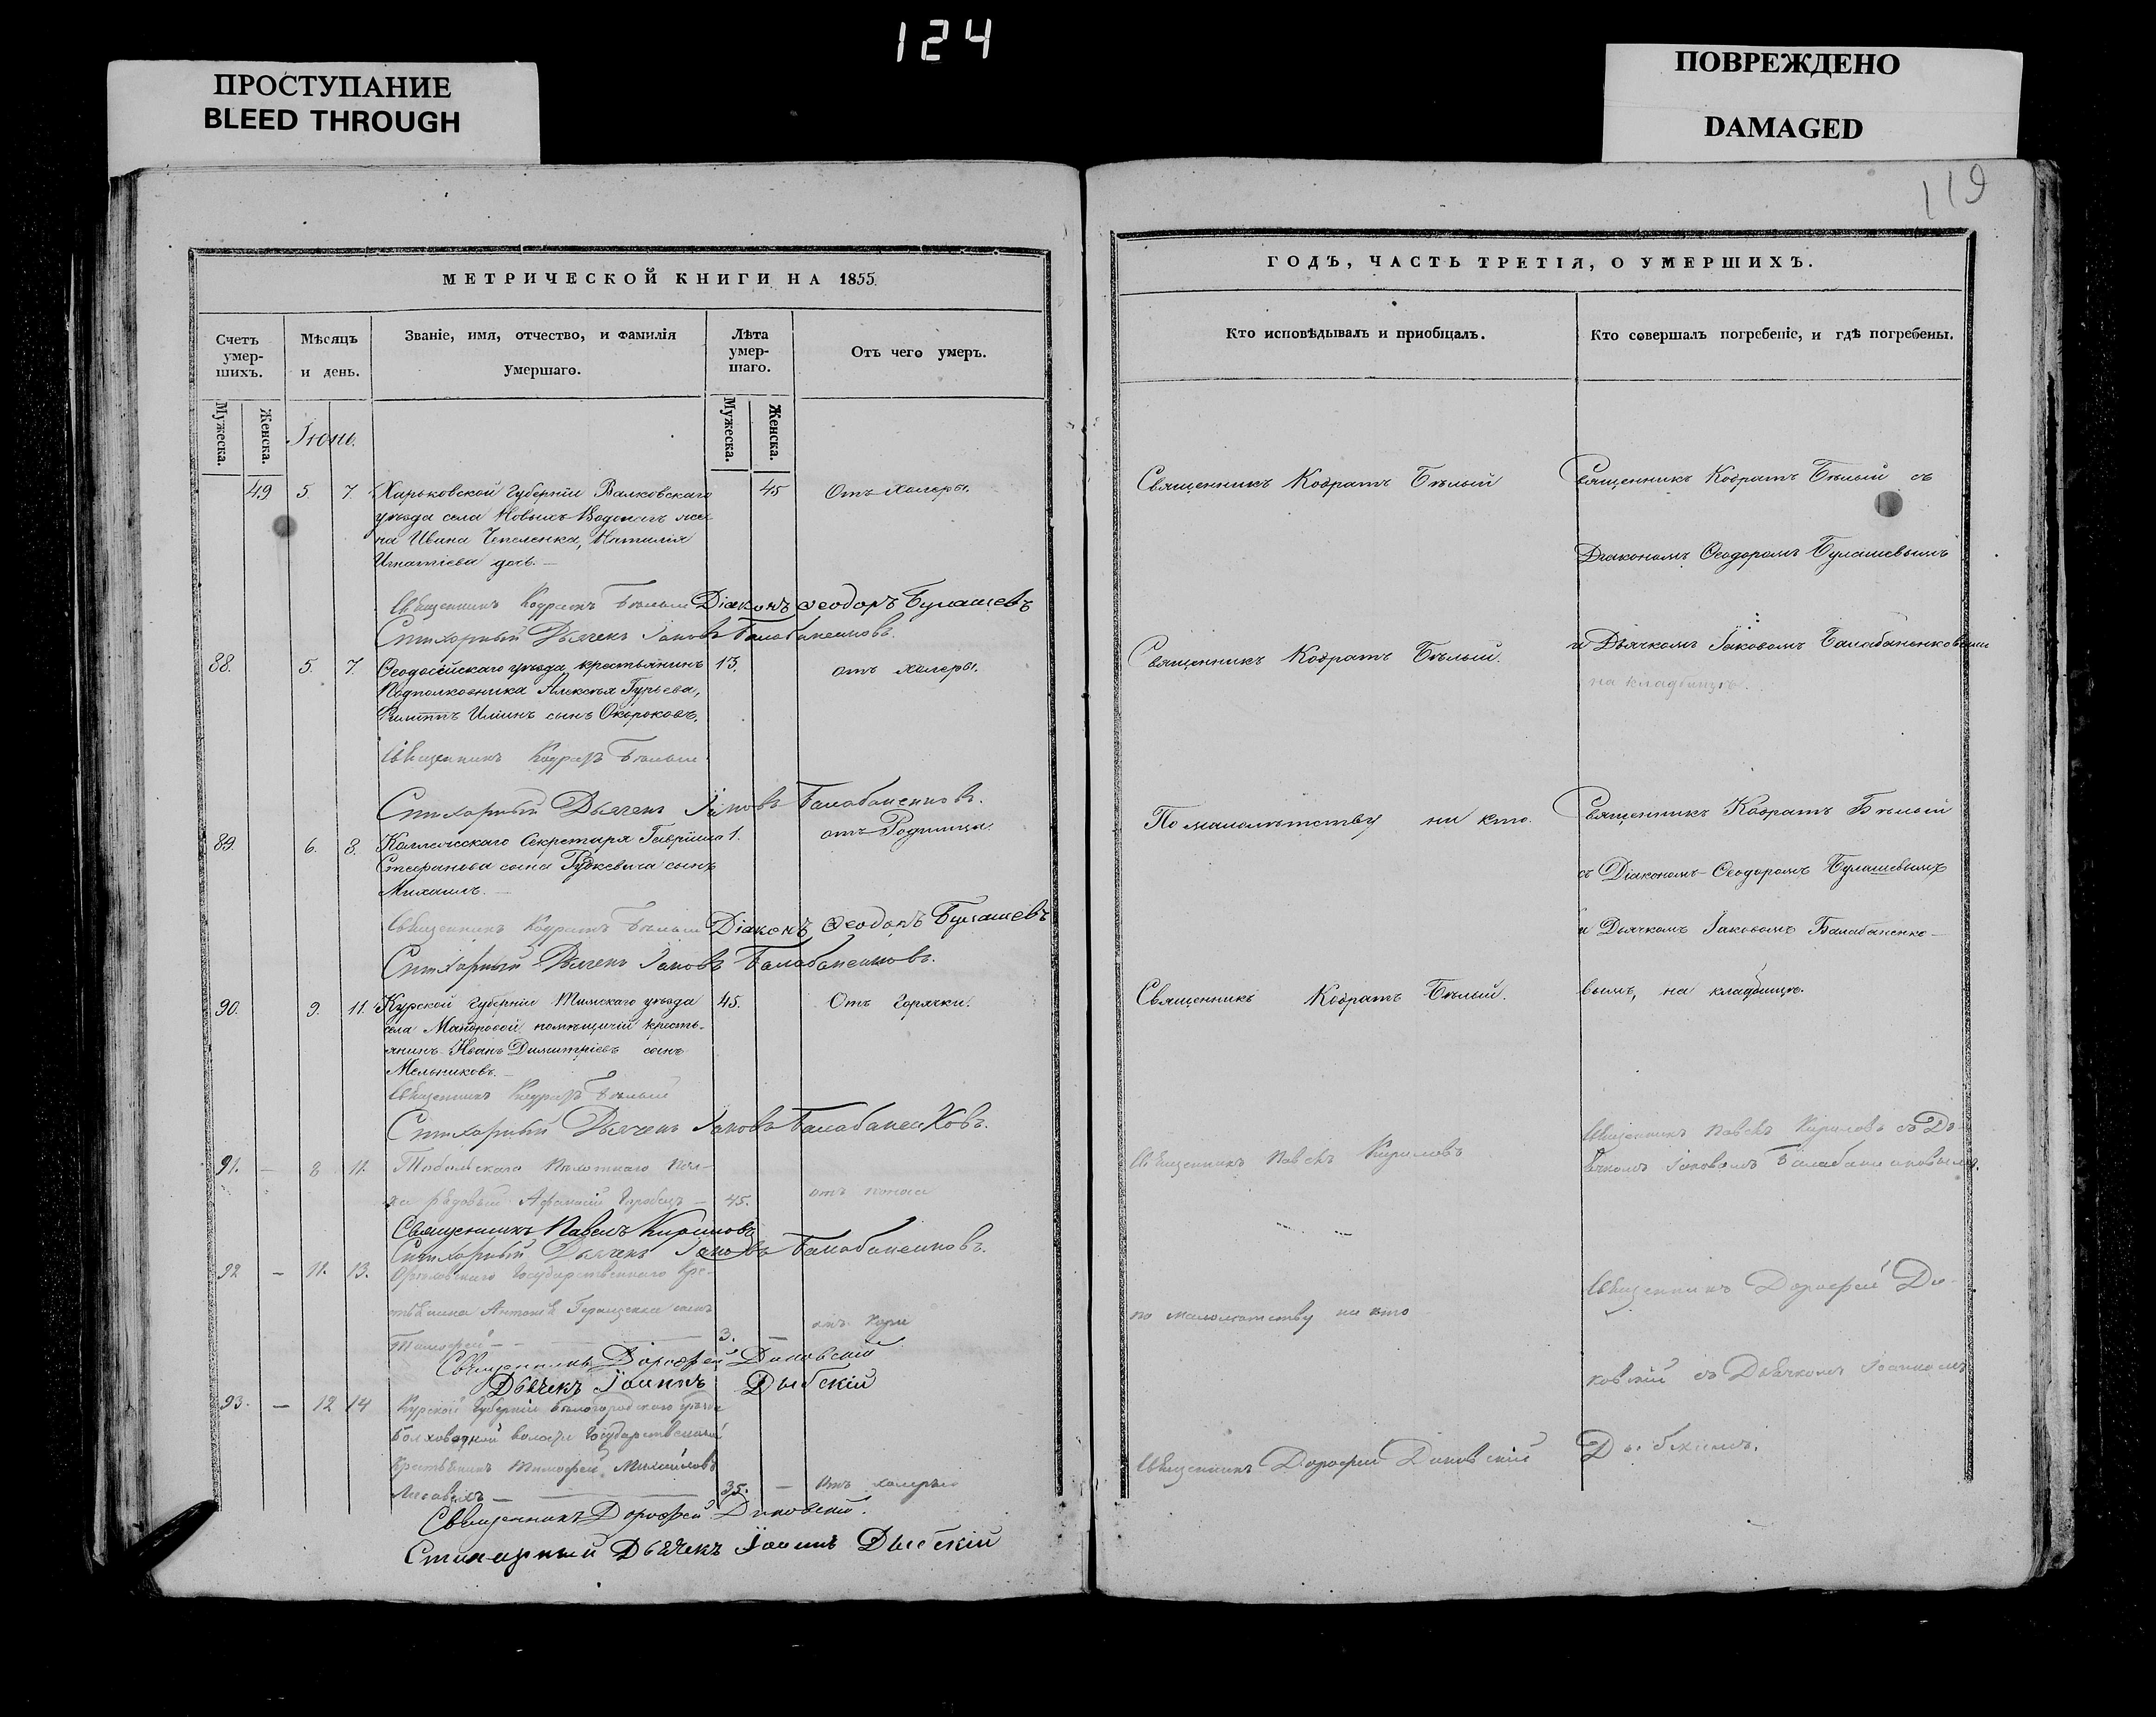 124
ПРОСТУПАНИЕ
BLEED THROUGH
ПОВРЕЖДЕНО
DAMAGED
119
МЕТРИЧЕСКОЙ КНИГИ НА 1855
Счетъ умер-шихъ.
Мѣсяцъ и день.
Званіе, имя, отчество, и фамилія Умершаго.
Лѣта умер-шаго.
Отъ чего умеръ.
Мужеска.
Женска.
Мужеска.
Женска.
Іюнь.
49 5. 7. Харьковской Губерніи Валковскаго 45 Отъ холеры.
уѣзда села Новыхъ Водолагъ же
на Ивана Чепеленка, Наталія
Игнатіева дочь.
Священникъ Кодратъ Бѣлый Діаконъ Ѳеодоръ Булашевъ
Стихарный Дьячекъ Іаковъ Балабаненковъ.
88. 5. 7. Ѳеодосійскаго уѣзда крестьянинъ 13. отъ холеры.
Подполковника Алексѣя Гурьева,
Филиппъ Ильинъ сынъ Окороковъ.
Священникъ Кодратъ Бѣлый
Стихарный Дьячекъ Іаковъ Балабаненковъ.
89. 6. 8. Коллежскаго Секретаря Гавріила 1. отъ Родимца.
Стефанова сына сынъ
Михаилъ.
Священникъ Кодратъ Бѣлый Діаконъ Ѳеодоръ Булашевъ
Стихарный Дьячекъ Іаковъ Балабаненковъ.
90. 9. 11. Курской Губерніи Тимскаго уѣзда 45. Отъ Горячки.
села Мандровой помѣщичій кресть-
янинъ Иванъ Димитріевъ сынъ
Мельниковъ.
Священникъ Кодратъ Бѣлый
Стихарный Дьячекъ Іаковъ Балабаненковъ.
91. — 8 11. Тобольскаго Пѣхотнаго Пол-
ка рядовый Афанасій — 45. отъ поноса
Священникъ Павелъ Кириловъ
Стихарный Дьячекъ Іаковъ Балабаненковъ.
92 — 11. 13. Государственнаго Кре-
стьянина Антонія Геращенки сынъ
Тимофей — 3. — отъ Кори
Священникъ Дорофей Диковскій
Дьячекъ Іоаннъ Дыбскій
93. — 12 14 Курской Губерніи Бѣлогородскаго уѣзда
волости Государственный
Крестьянинъ Тимофей Михайловъ
— 35. — отъ холеры
Священникъ Дорофей Диковскій.
Стихарный Дьячекъ Іоаннъ Дыбскій
ГОДЪ, ЧАСТЬ ТРЕТІЯ, О УМЕРШИХЪ.
Кто исповѣдывалъ и пріобщалъ.
Кто совершалъ погребеніе, и гдѣ погребены.
Священникъ Кодратъ Бѣлый
Священникъ Кодратъ Бѣлый съ
Діакономъ Ѳеодоромъ Булашевымъ
Священникъ Кодратъ Бѣлый.
и Дьячкомъ Іаковомъ Балабаненковымъ
на кладбищѣ.
По малолѣтству ни кто.
Священникъ Кодратъ Бѣлый
съ Діакономъ Ѳеодоромъ Булашевымъ
и Дьячкомъ Іаковомъ Балабаненко-
Священникъ Кодратъ Бѣлый.
вымъ, на кладбищѣ.
Священникъ Павелъ Кириловъ
Священникъ Павелъ Кириловъ съ Дь-
ячкомъ Іаковомъ Балабаненковымъ.
по малолѣтству ни кто
Священникъ Дорофей Ди-
ковскій съ Дьячкомъ Іоанномъ
Священникъ Дорофей Диковскій
Дыбскимъ.